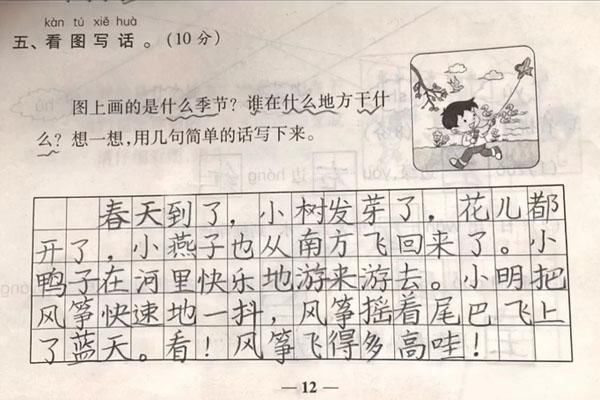 kàn tú xiě huà
五、看图写话。(10分)
图上画的是什么季节？谁在什么地方干什
么？想一想，用几句简单的话写下来。
春天到了，小树发芽了，花儿都
开了，小燕子也从南方飞回来了。小
鸭子在河里快乐地游来游去。小明把
风筝快速地一抖，风筝摇着尾巴飞上
了蓝天。看！风筝飞得多高哇！
— 12 —